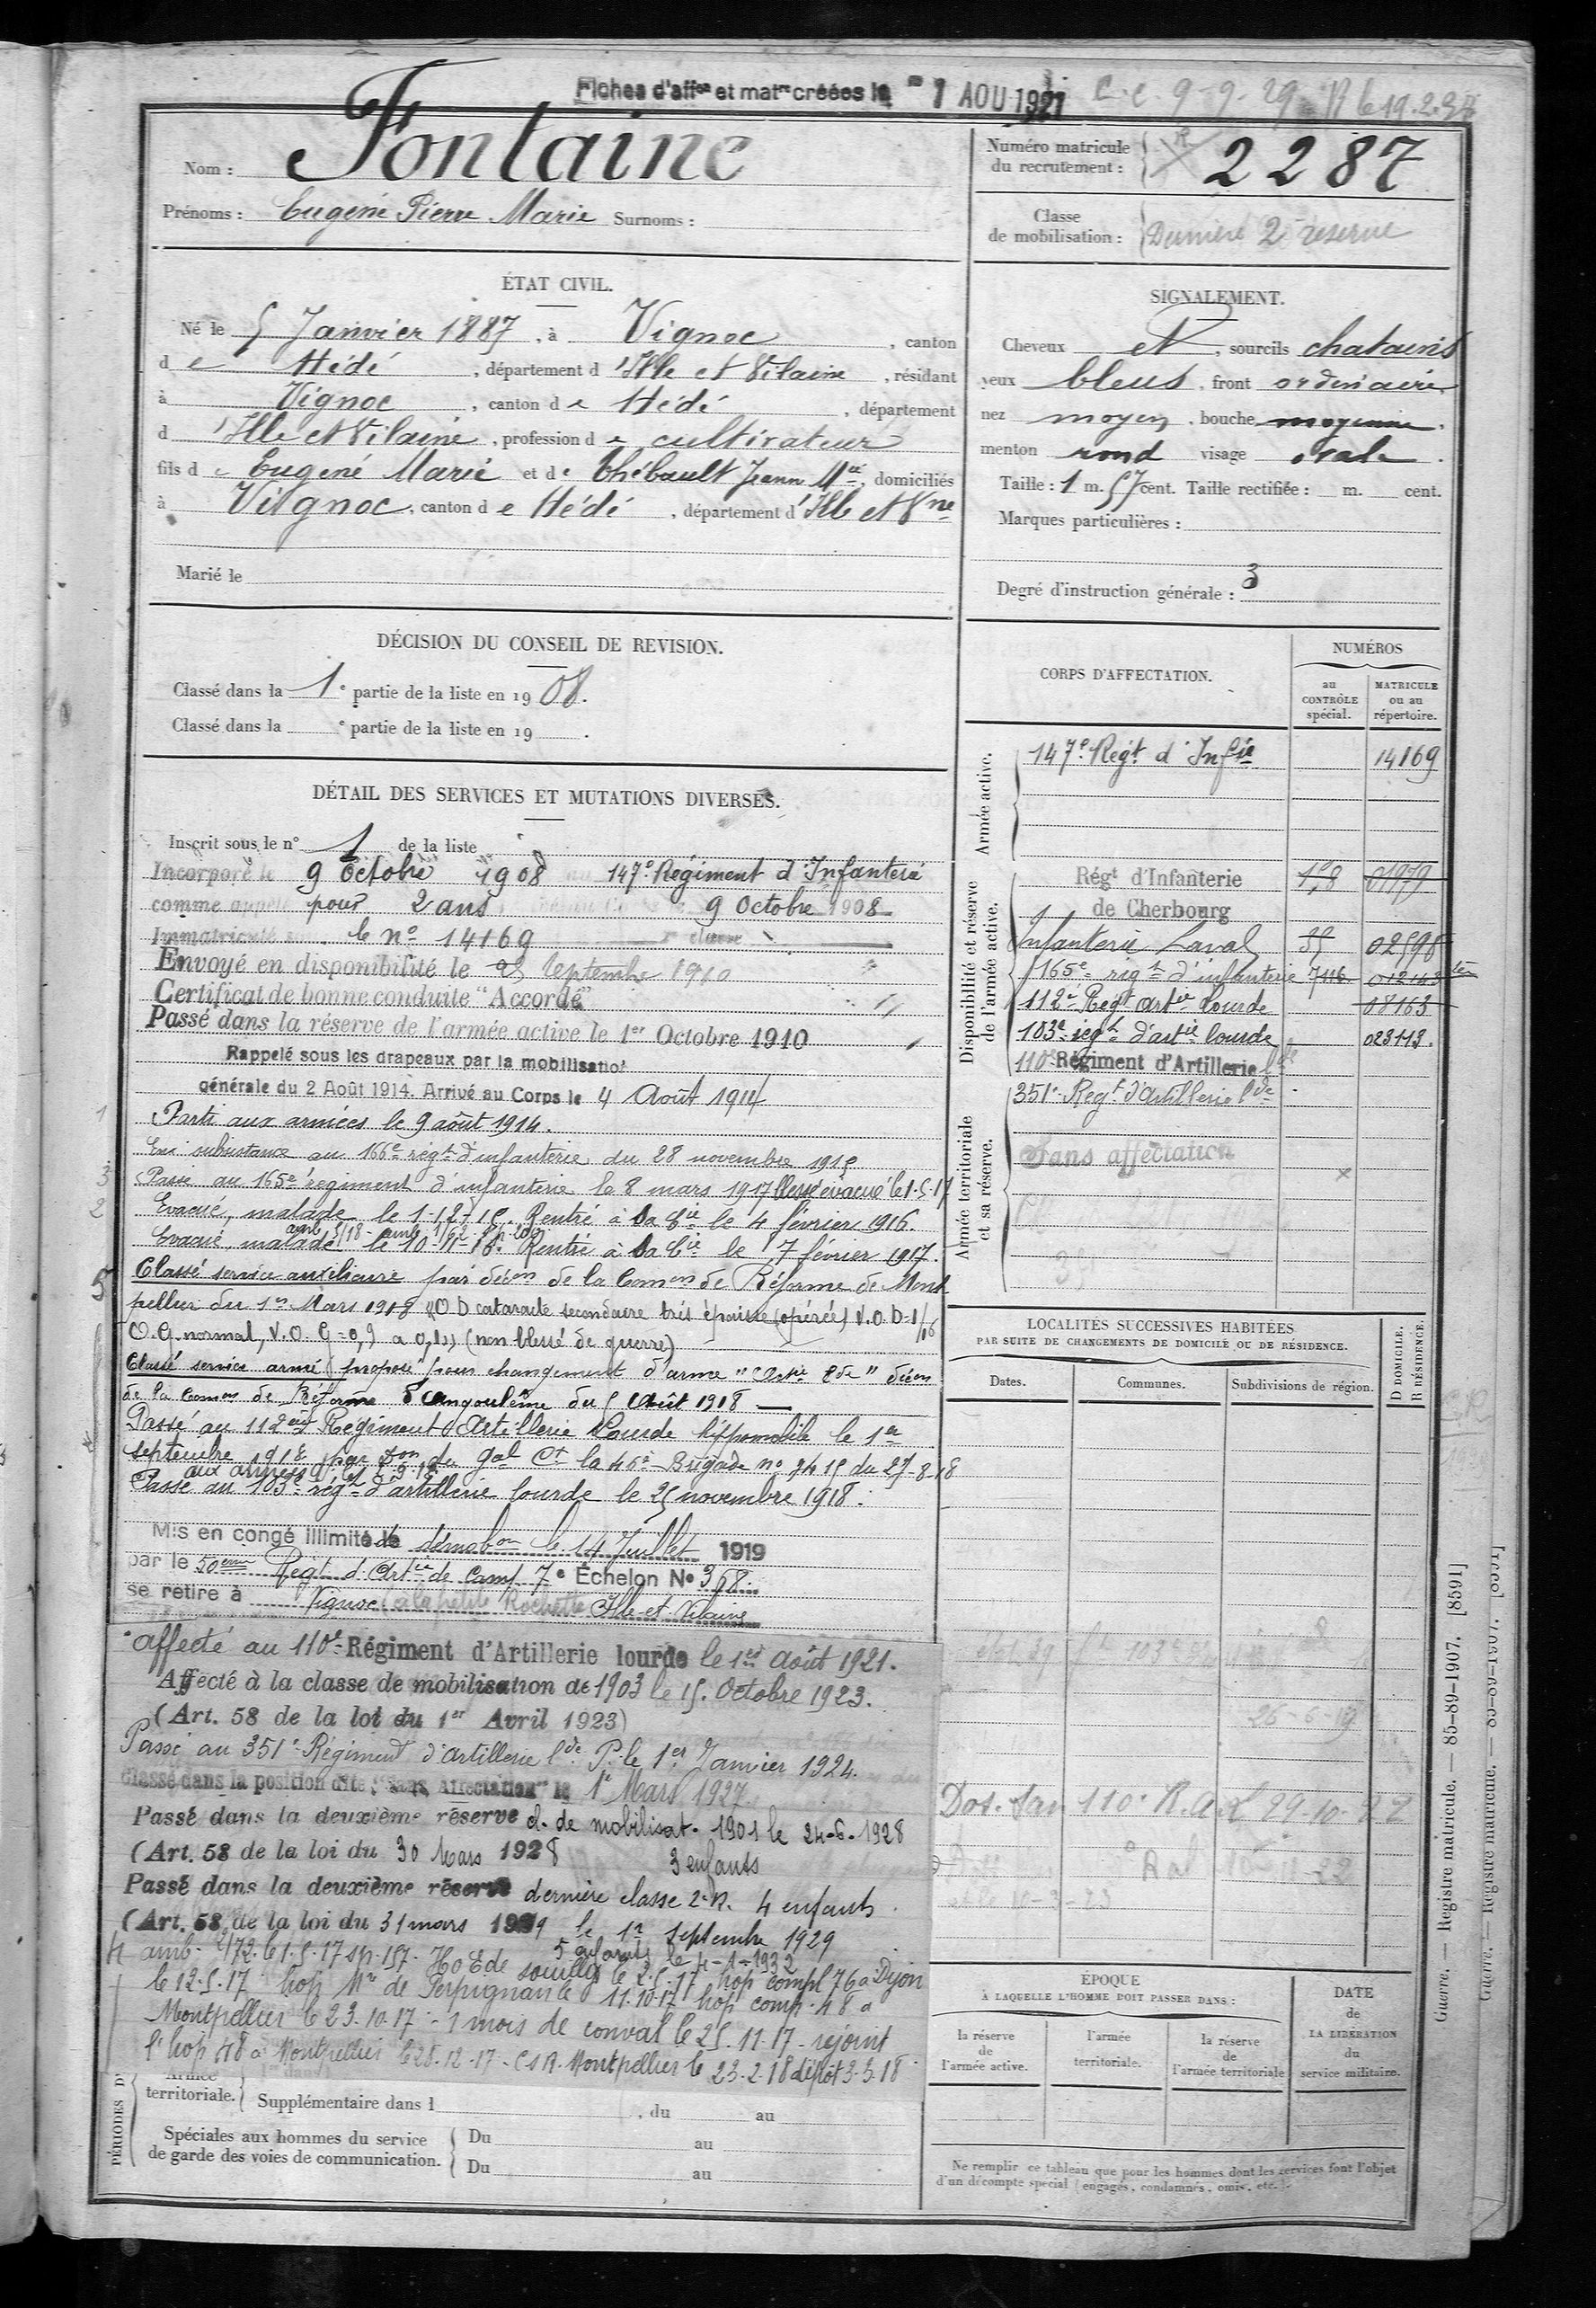 Fiches d'affon et matre créées le 1 AOU 1921 C.C. 9-9-29
Nom : Fontaine
Prénoms : Eugène Pierre Marie Surnoms :
Numéro matricule du recrutement : 2287
Classe de mobilisation : Dernière 2e réserve
ÉTAT CIVIL.
Né le 5 Janvier 1887, à Vignoc, canton
de Hédé, département d'Ille et Vilaine, résidant
à Vignoc, canton de Hédé, département
d'Ille et Vilaine, profession de cultivateur
fils de Eugené Marie et de Thébault Jeann Mie, domiciliés
à Vignoc, canton de Hédé, département d'Ille et Vne
Marié le
SIGNALEMENT.
Cheveux et, sourcils chatains
yeux bleus, front ordinaire
nez moyen, bouche moyenne,
menton rond visage ovale.
Taille : 1 m. 57 cent. Taille rectifiée : m. cent.
Marques particulières :
Degré d'instruction générale : 3
DÉCISION DU CONSEIL DE REVISION.
Classé dans la 1e partie de la liste en 1908.
Classé dans la e partie de la liste en 19 .
DÉTAIL DES SERVICES ET MUTATIONS DIVERSES.
Inscrit sous le n° 1 de la liste
Incorporé le 9 Octobre 1908 au 147e Régiment d'Infanterie
comme appelé pour 2 ans 9 Octobre 1908
Immatriculé sous le no 14169 classe
Envoyé en disponibilité le 25 Septembre 1910
Certificat de bonne conduite "Accordé"
Passé dans la réserve de l'armée active le 1er Octobre 1910
Rappelé sous les drapeaux par la mobilisation
générale du 2 Août 1914. Arrivé au Corps le 4 Août 1914
Parti aux armées le 9 août 1914.
En subsistance au 166e régt d'infanterie du 28 novembre 1915
Passé au 165e régiment d'infanterie le 8 mars 1917 blessé évacué le 1.5.17
Evacué, malade le 1-12-15. Rentré à sa Cie le 4 février 1916.
Evacué, malade le 10-11-16. Rentré à sa Cie le 7 février 1917.
Classé service auxiliaire par décon de la Comon de Réforme de Mont
pellier du 1er Mars 1918 "O D cataracte secondaire très épaisse (opérée) V.O.D=1/16
O.G. normal, V.O.G=0,9 a 0,1" (non blessé de guerre)
Classé service armé "proposé" pour changement d'arme "Artie Lde" décon
de la Comon de Réforme d'Angoulême du 5 Août 1918
Passé au 112eme Régiment d'Artillerie Lourde hippomobile le 1er
septembre 1918 par Don du gal Ct la 46e Brigade no 7415 du 27-8-18
aux armées
Passé au 103e régt d'artillerie lourde le 25 novembre 1918.
Mis en congé illimité de démobon le 14 Juillet 1919
par le 50eme Régt d'Artie de Camp 7e Échelon No 368
se retire à Vignoc (a la petite Rochette Ille-et-Vilaine
affecté au 110e Régiment d'Artillerie lourde le 1er Août 1921.
Affecté à la classe de mobilisation de 1903 le 15 Octobre 1923.
(Art. 58 de la loi du 1er Avril 1923)
Passé au 351e Régiment d'artillerie lde P. le 1er Janvier 1924.
Classé dans la position dite "Sans Affectation" le 1e Mars 1927
Passé dans la deuxième réserve cl. de mobilisat. 1901 le 24-6-1928
(Art. 58 de la loi du 30 Mars 1928 3 enfants
Passé dans la deuxième réserve dernière classe 2e R. 4 enfants
(Art. 58 de la loi du 31 mars 1929 le 1er Septembre 1929
5 enfants le 4-1-1932
amb. 2/72 le 1.5.17 sp. 157. H o E de Souilly le 2.5.17 hop compl 76 a Dijon
le 12.5.17 hop Mre de Perpignan le 11.10.17 hop comp. 48 a
Montpellier le 23.10.17 - 1 mois de conval le 25.11.17 - rejoint
l'hop 48 a Montpellier le 28.12.17 - C S R. Montpellier le 23.2.18 dépôt 3.3.18
PÉRIODES
Armée territoriale. Supplémentaire dans l , du au
Spéciales aux hommes du service de garde des voies de communication. Du au
Du au
CORPS D'AFFECTATION.
NUMÉROS
au CONTRÔLE spécial.
MATRICULE ou au répertoire.
Armée active.
147e Régt d'Infie 14169
Disponibilité et réserve de l'armée active.
Régt d'Infanterie de Cherbourg 01979
Infanterie Laval 35 02598
165e régt d'infanterie 7116 012143
112e Régt Artie Lourde 08163
103e régt d'artie lourde 023113.
110e Régiment d'Artillerie lde
351e Regt d'Artillerie lde
Armée territoriale et sa réserve.
Sans affectation
LOCALITÉS SUCCESSIVES HABITÉES
PAR SUITE DE CHANGEMENTS DE DOMICILE OU DE RÉSIDENCE.
Dates. Communes. Subdivisions de région. D DOMICILE. R RÉSIDENCE.
26-6-19
Dos. San 110e R.A.L 29-10-27
ÉPOQUE
À LAQUELLE L'HOMME DOIT PASSER DANS :
la réserve de l'armée active.
l'armée territoriale.
la réserve de l'armée territoriale
DATE de LA LIBÉRATION du service militaire.
Ne remplir ce tableau que pour les hommes dont les services font l'objet
d'un décompte spécial (engagés, condamnés, omis, etc.).
Guerre. — Registre matricule. — 85-89-1907. [8591]
Guerre. — Registre matricule. — 85-89-1907. [8591]